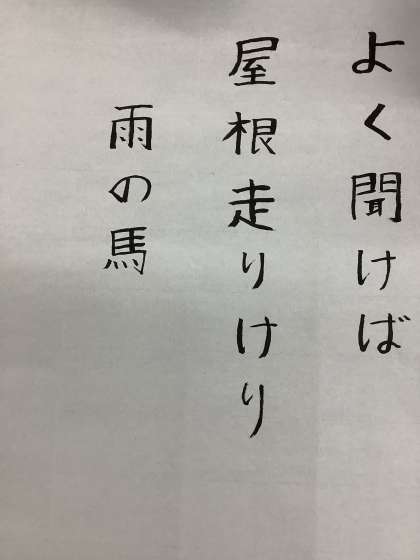 よく聞けば
屋根走りけり
雨の馬